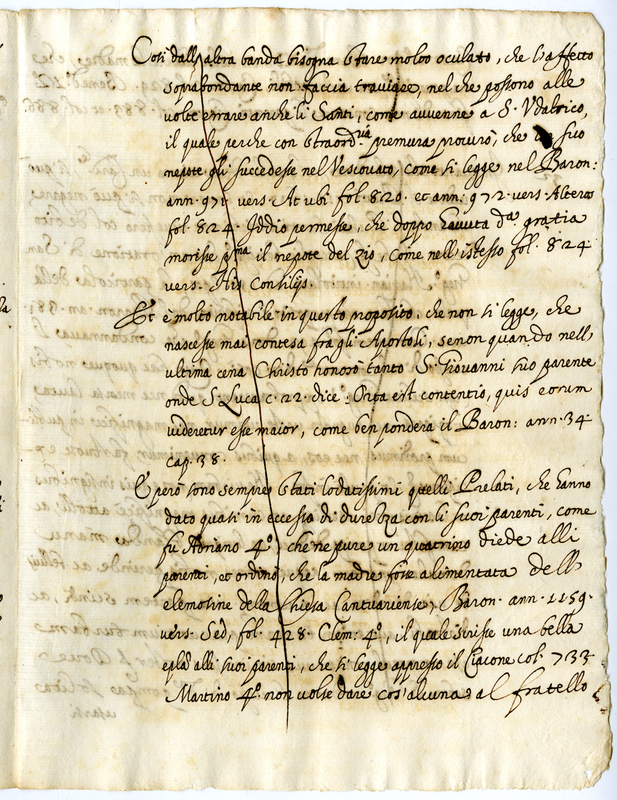 Così dall'altra banda bisogna stare molto oculato, che l'affetto
soprabondante non faccia traviare, nel che possono alle
volte errare anche li Santi, come avvenne a S. Vdalrico,
il quale perche con straord.ria premura procurò, che un suo
nepote gli succedesse nel Vescouato, come si legge nel Baron:
ann. 971. vers. At ubi fol. 820. et ann: 972. vers. Alteros
fol. 824. Iddio permesse, che doppo hauuta d.a gratia
morisse p.ma il nepote del zio, come nell'istesso fol. 824
vers. His Consilijs.
Et è molto notabile in questo proposito, che non si legge, che
nascesse mai contesa fra gli Apostoli, se non quando nell'
ultima cena Christo honorò tanto S. Giovanni suo parente
onde S. Luca c. 22. dice: Orta est contentio, quis eorum
videretur esse maior, come ben pondera il Baron: ann. 34.
cap. 38.
E però sono sempre stati lodatissimi quelli Prelati, che hanno
dato quasi in eccesso di durezza con li suoi parenti, come
fù Adriano 4.o che ne pure un quatrino diede alli
parenti, et ordinò, che la madre fosse alimentata dell'
elemosine della Chiesa Cantuariense, Baron. ann. 1159.
vers. Sed, fol. 428. Clem: 4.o, il quale scrisse una bella
epla alli suoi parenti, che si legge appresso il Ciacone col. 733
Martino 4.o non volse dare cos'alcuna al fratello